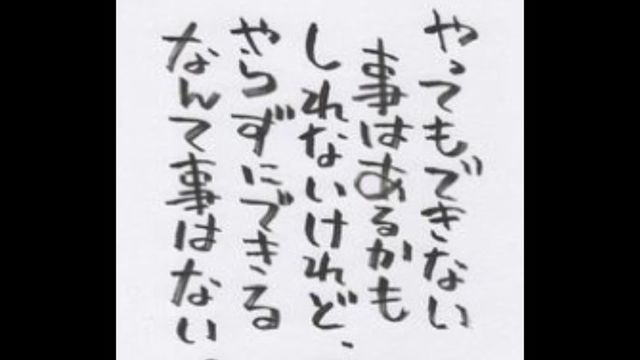 やってもできない
事はあるかも
しれないけれど、
やらずにできる
なんて事はない。